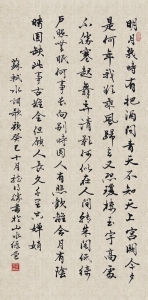 明月幾時有把酒問青天不知天上宮闕今夕
是何年我欲乘風歸去又恐瓊樓玉宇高處
不勝寒起舞弄清影何似在人間轉朱閣低綺
戶照無眠何事長向別時圓人有歡離合月有陰
晴圓缺此事古難全但願人長久千里共嬋娟
蘇軾水調歌頭癸巳十月書於山水